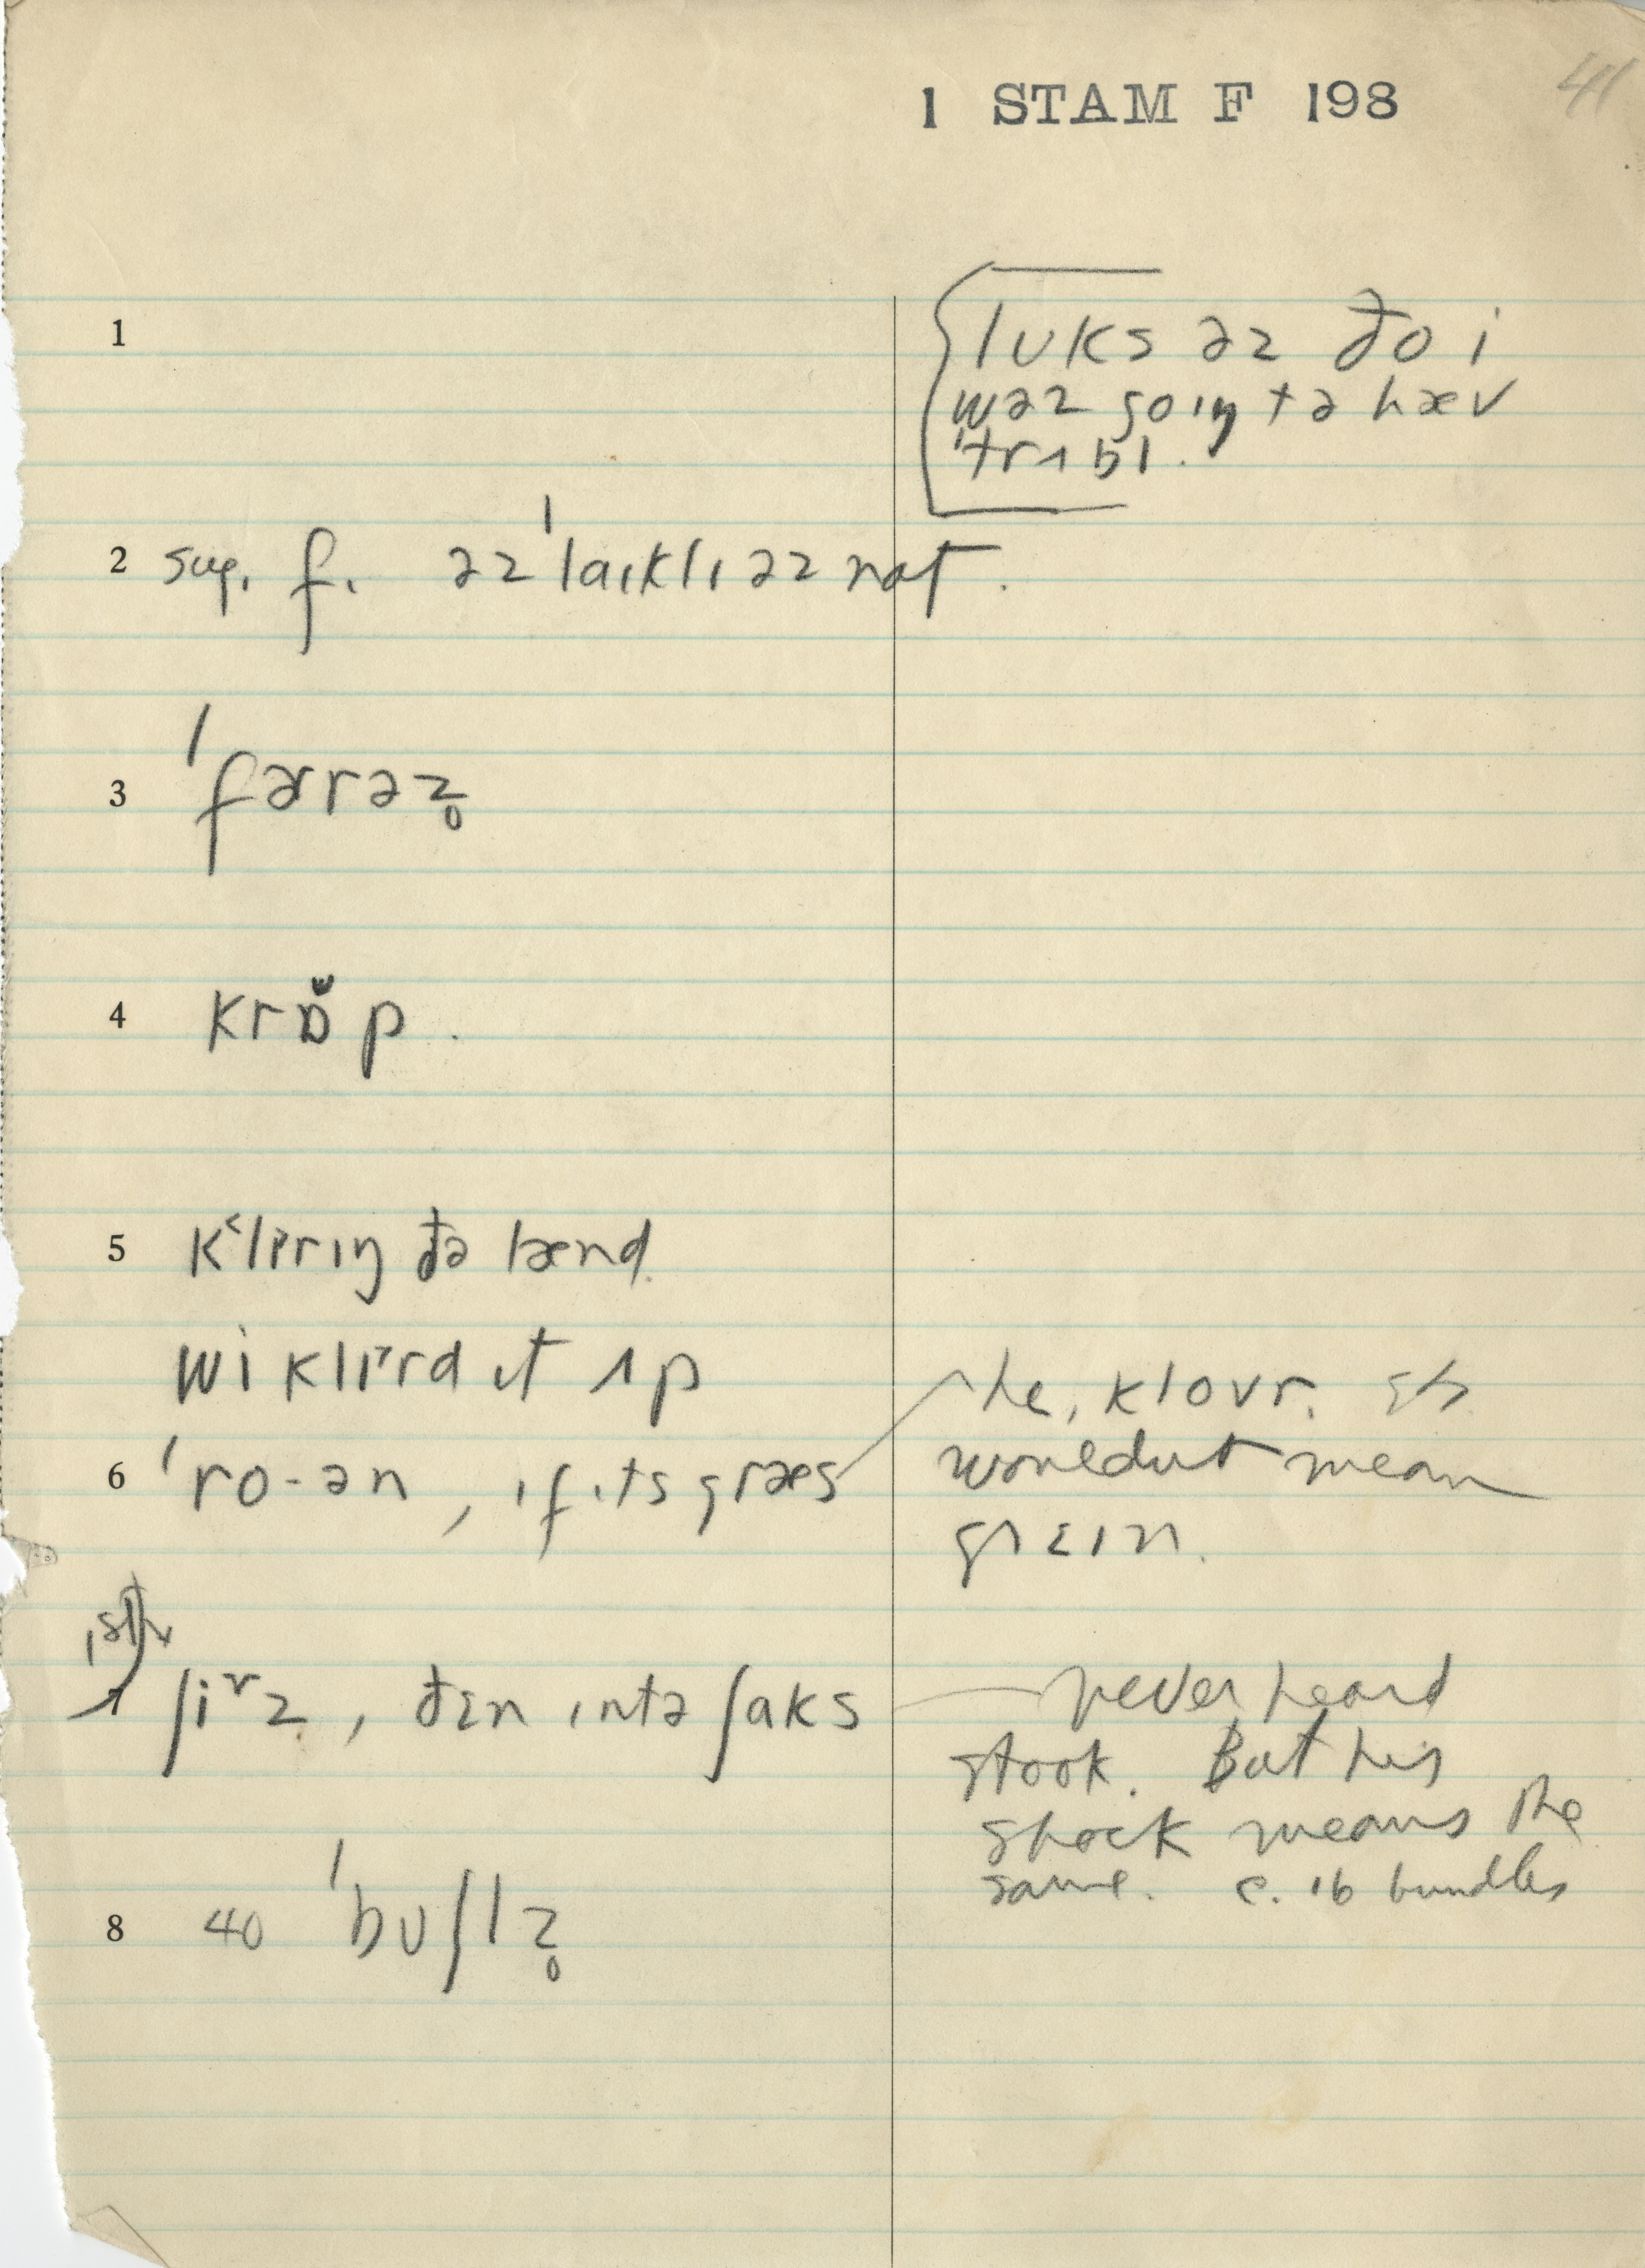 1 STAM F 198
41
1
lʊks əz ðo i
wəz goɪŋ tə hæv
ˈtrʌbl.
2 sug. f. əz ˈlaɪklɪ əz nɑt.
3 ˈfɚrəz̥
4 krɒ̆p.
5 klɪrɪŋ ðə lænd.
wi klɪrd ɪt ʌp
6 ˈro-ən, ɪf ɪts græs
he, klovr.
wouldnt mean
greɪn.
1st
7 ʃiᵛz, ðɛn ɪntə ʃɑks
never heard
stook. But his
shock means the
same. c. 16 bundles
8 40 ˈbʊʃlz̥